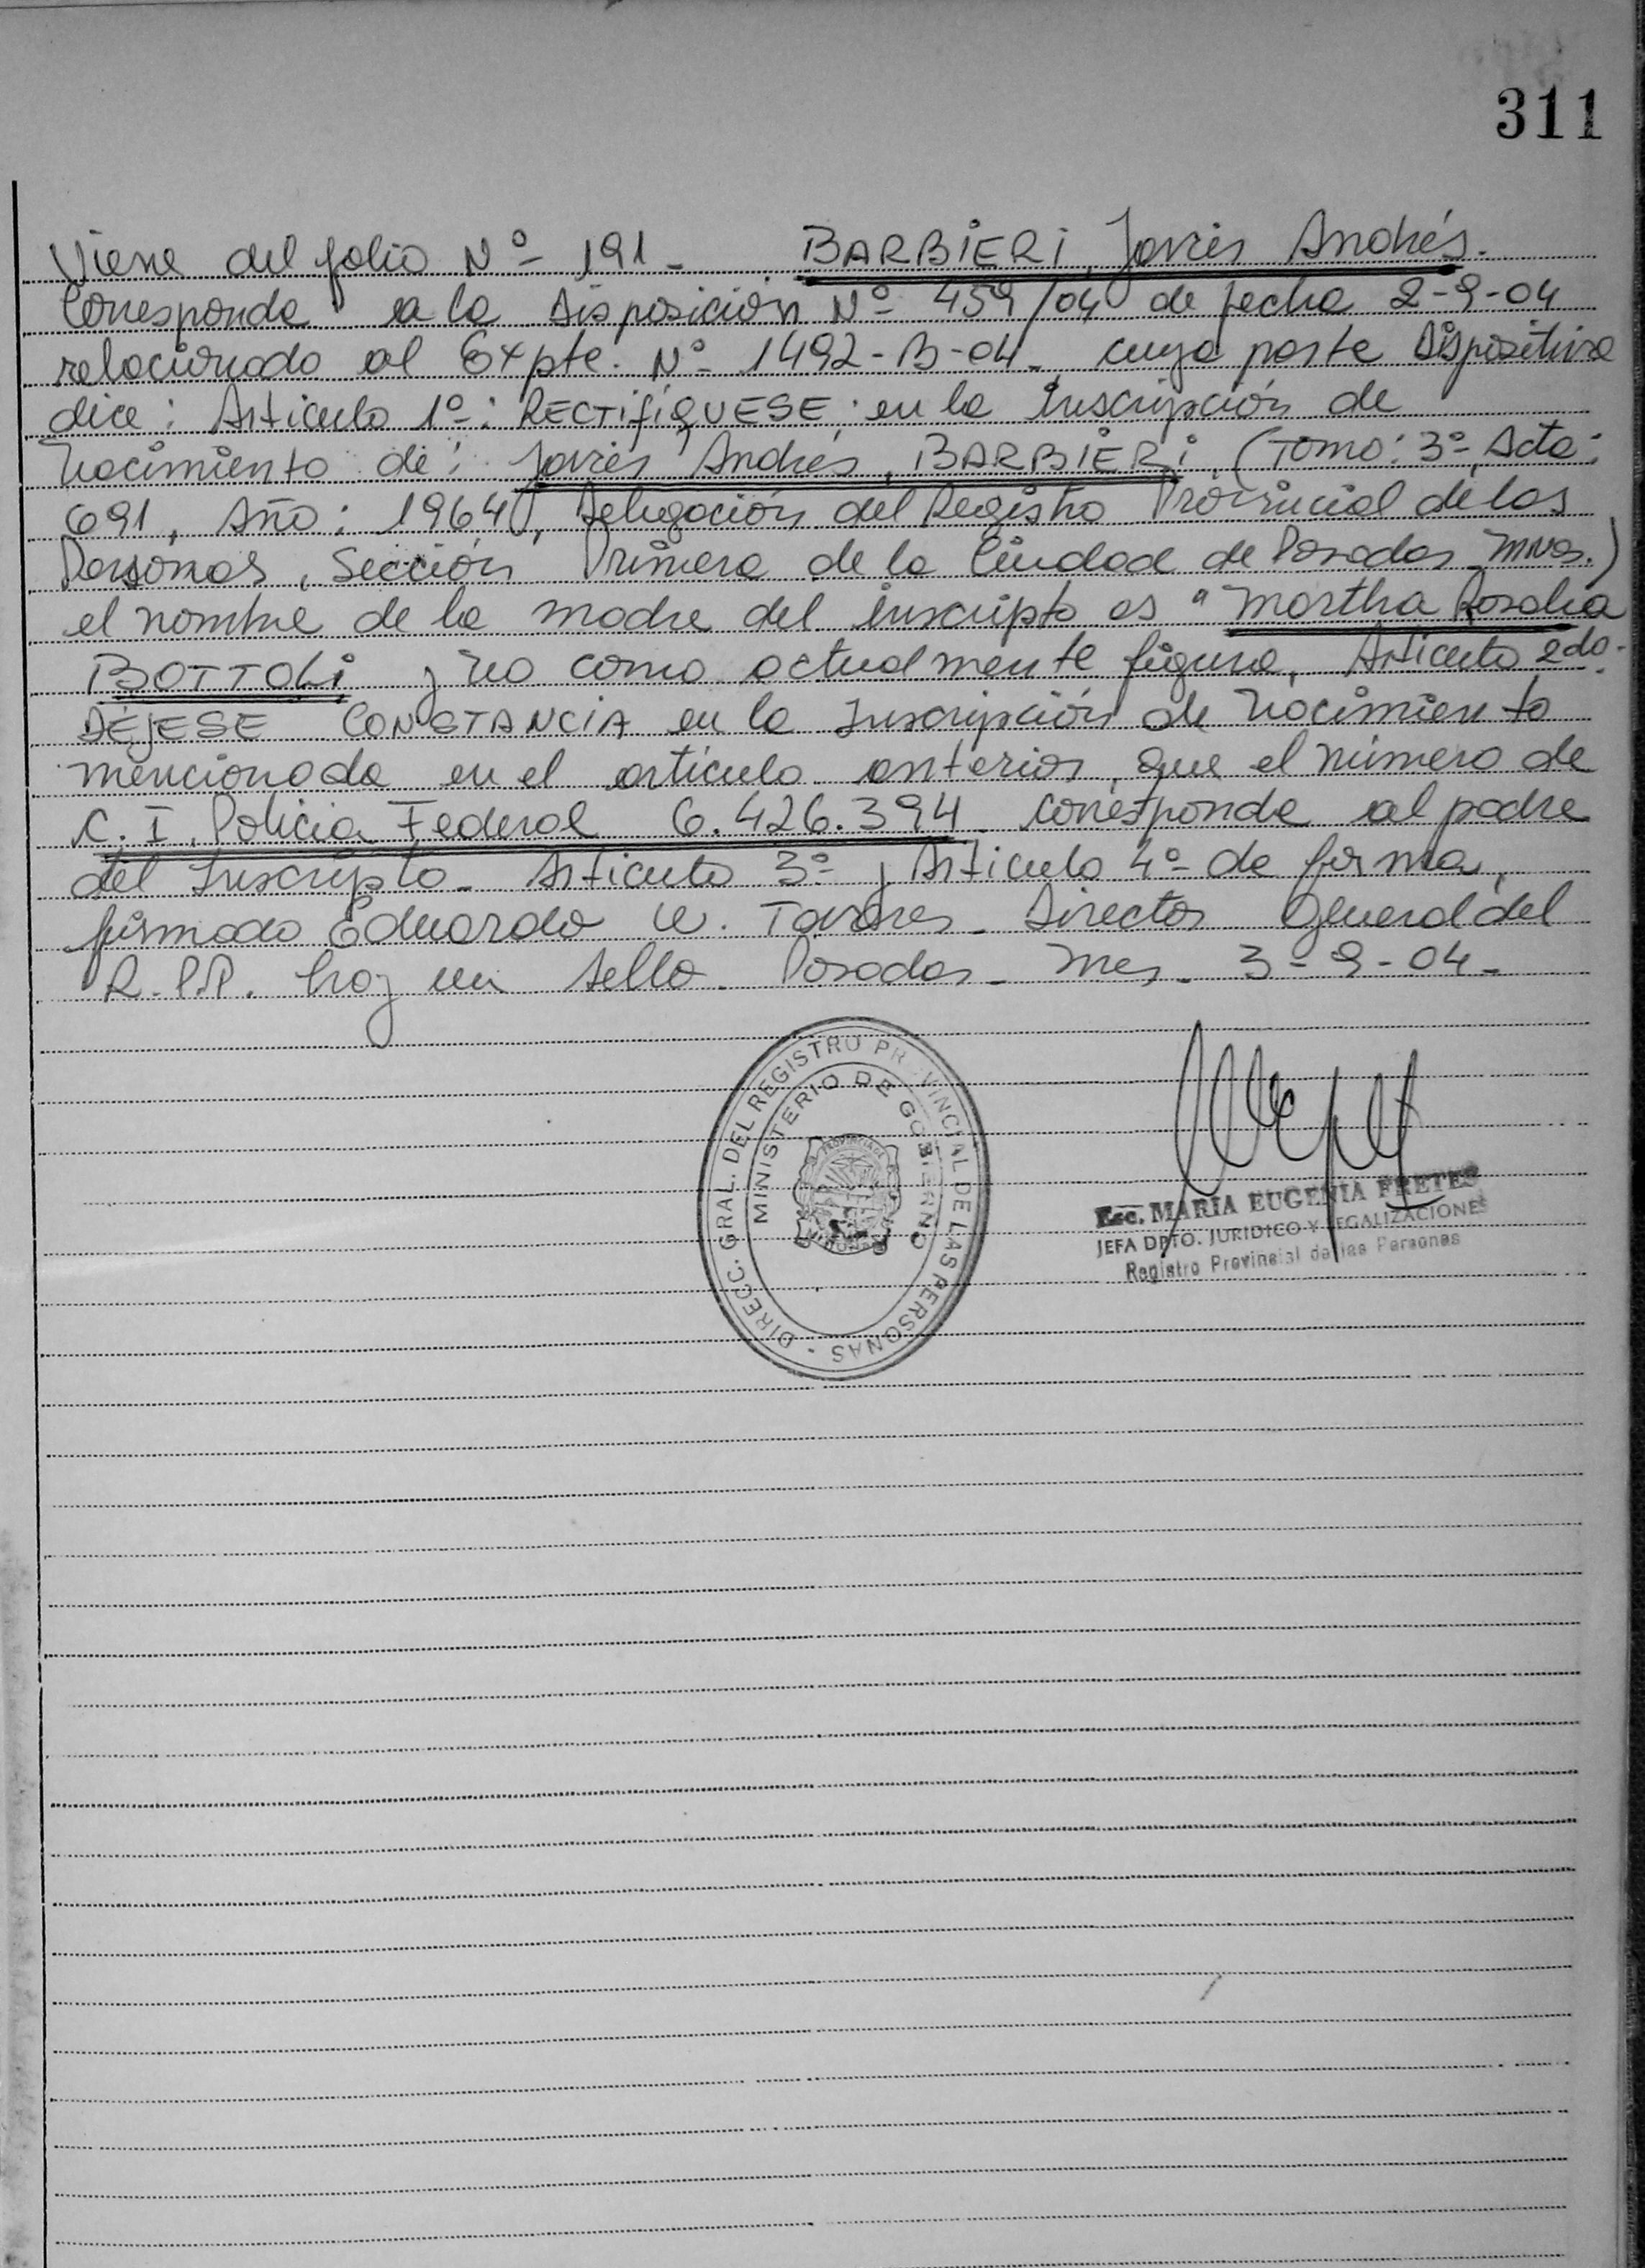 311
Viene del folio Nº 191 - BARBIERI, Javier Andrés.
Corresponde a la Disposición Nº 459/04 de fecha 2-9-04
relacionado al Expte. Nº 1492-B-04- cuya parte Dispositiva
dice: Articulo 1º: RECTIFÍQUESE: en la Inscripción de
Nacimiento de: Javier Andrés, BARBIERI, (Tomo: 3º, Acta:
691, Año: 1964, Delegación del Registro Provincial de las
Personas, Sección Primera de la Ciudad de Posadas Mnes.)
el nombre de la madre del inscripto es "Martha Rosalia
BOTTOLI y no como actualmente figura, Articulo 2do.
DÉJESE CONSTANCIA en la Inscripción de Nacimiento
mencionada en el artículo anterior, que el número de
C. I. Policia Federal 6.426.394 corresponde al padre
del Inscripto - Articulo 3º y Articulo 4º de forma,
firmado Eduardo W. Tavares - Director General del
R.P.P. hay un sello. Posadas - Mes. 3-9-04-
DIRECC. GRAL. DEL REGISTRO PROVINCIAL DE LAS PERSONAS
MINISTERIO DE GOBIERNO
Esc. MARIA EUGENIA FRETES
JEFA DPTO. JURIDICO Y LEGALIZACIONES
Registro Provincial de las Personas